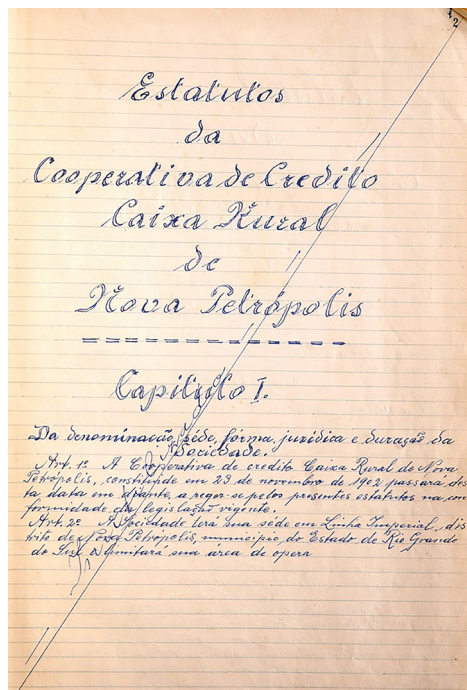 2
Estatutos
da
Cooperativa de Credito
Caixa Rural
de
Nova Petrópolis
Capitulo I.
Da denominacção, séde, fórma juridica e duração da
Sociedade.
Art. 1º A Cooperativa de credito Caixa Rural de Nova
Petrópolis, constituide em 23 de novembro de 1902 passará des
ta data em diante, a reger-se pelos presentes estatutos na con
formidade da legislação vigente.
Art. 2º A Sociedade terá sua séde em Linha Imperial, dis
trito de Nova Petropolis, municipio, do Estado de Rio Grande
do Sul limitará sua área de opera